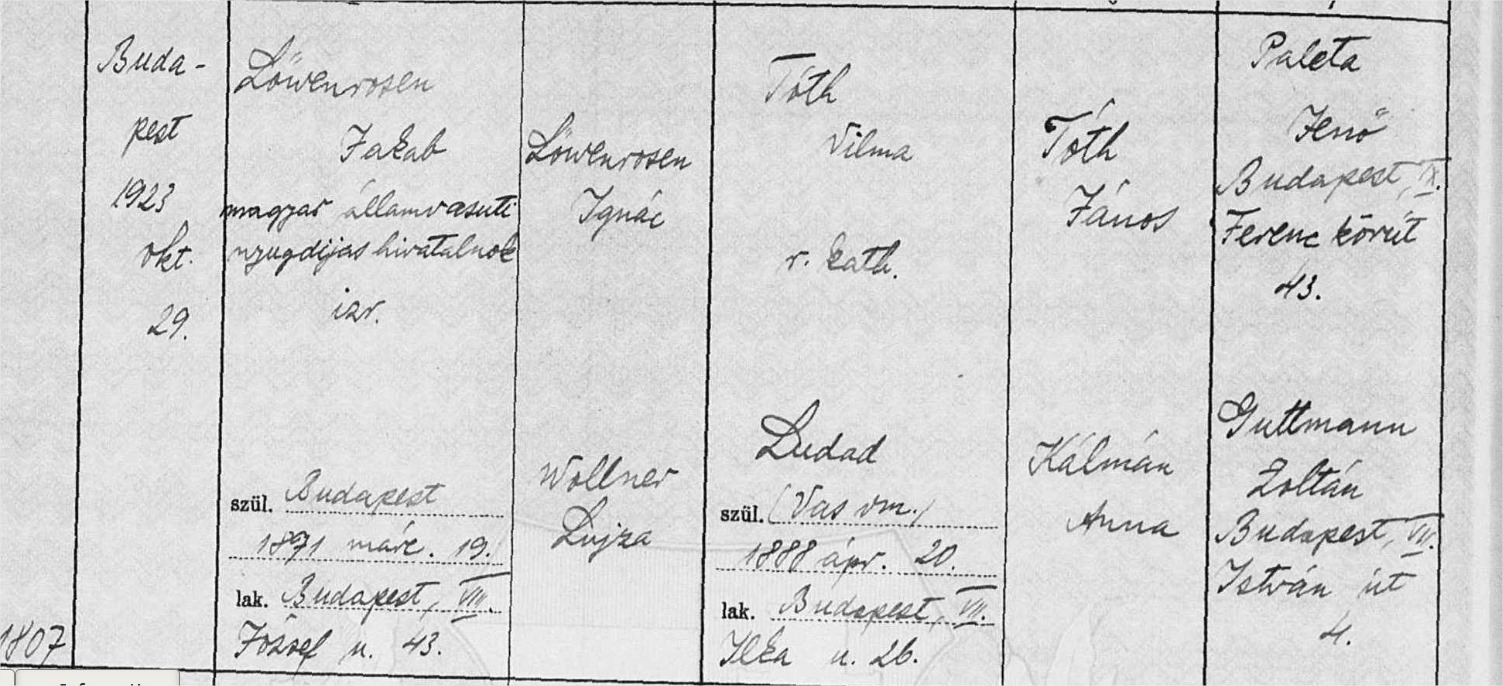 1807
Buda-
pest
1923
okt.
29.
Löwenrosen
Jakab
magyar államvasuti
nyugdijas hivatalnok
izr.
szül. Budapest
1871 márc. 19.
lak. Budapest, VIII.
József u. 43.
Löwenrosen
Ignác
Wollner
Lujza
Tóth
Vilma
r. kath.
Dudad
szül. (Vas vm.)
1888 ápr. 20.
lak. Budapest, VII.
Ilka u. 26.
Tóth
János
Kálmán
Anna
Paleta
Jenő
Budapest, IX.
Ferenc körút
43.
Guttmann
Zoltán
Budapest, VII.
István út
4.